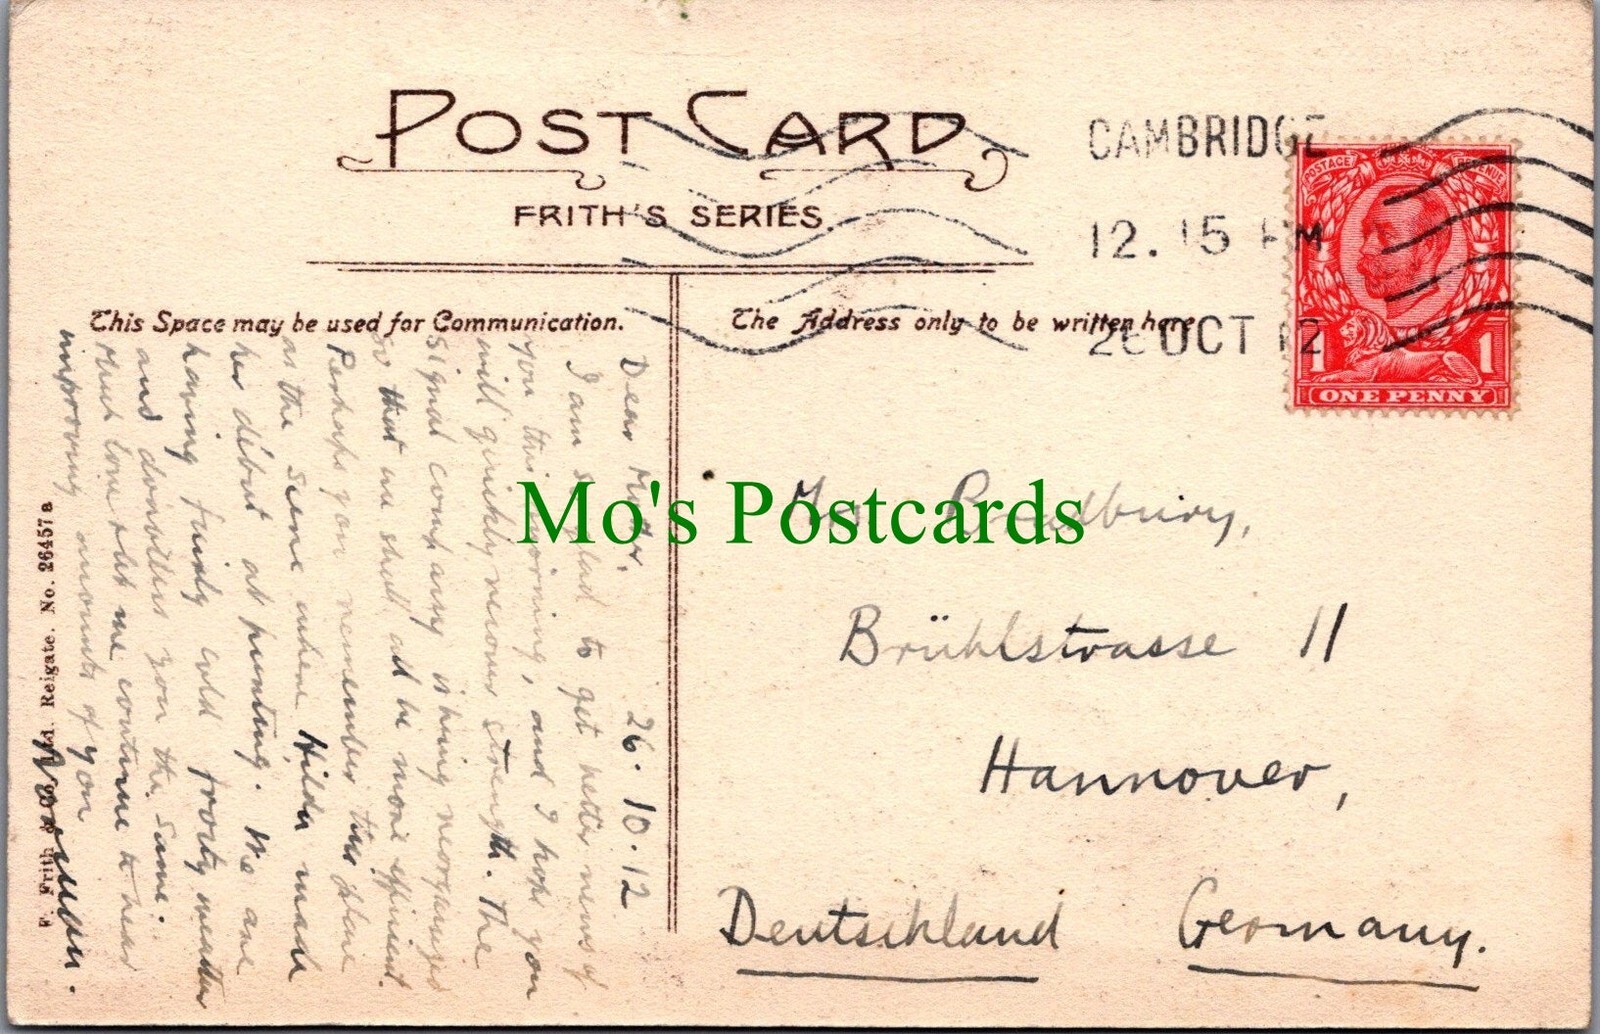 POST CARD
FRITH'S SERIES.
CAMBRIDGE
12. 15 PM
26 OCT 12
POSTAGE REVENUE
1 1
ONE PENNY
This Space may be used for Communication.
The Address only to be written here
Dear Mother, 26.10.12
I am so glad to get better news of
you this morning, and I hope you
will quickly recover strength. The
Signal company is being reorganised
so that we shall all be more efficient.
Perhaps you remember this place
as the scene where Hilda made
her début at punting. We are
having fairly cold frosty weather
and doubtless you the same.
Much love & let me continue to hear
improving accounts of you
Norman.
Mrs Bradbury,
Brühlstrasse 11
Hannover,
Deutschland Germany.
F. Frith & Co. Ltd. Reigate. No. 26457a
Mo's Postcards